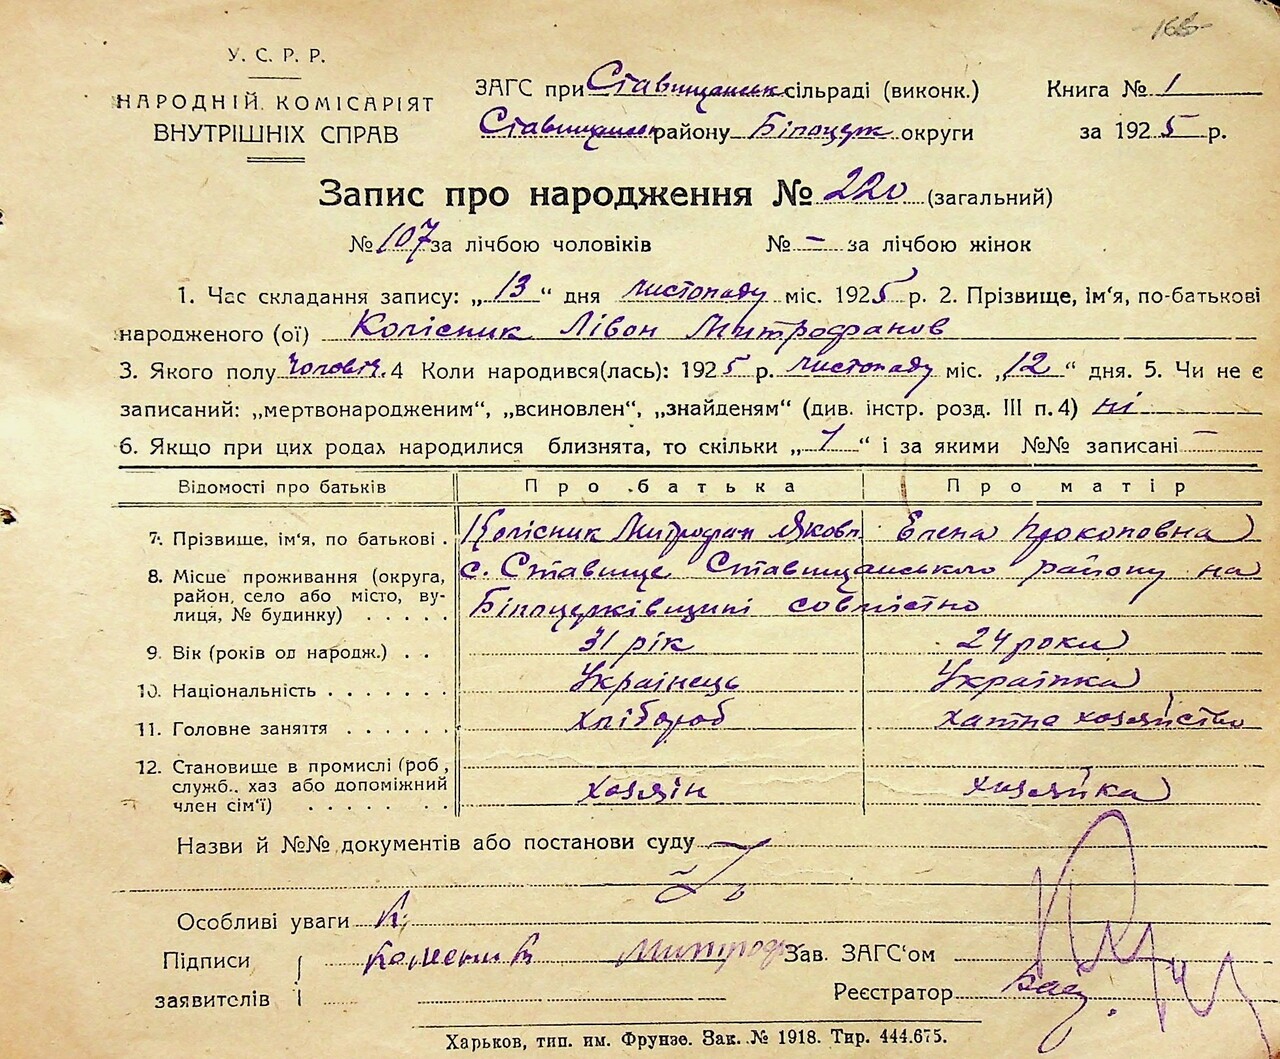 У. С. Р. Р.
НАРОДНІЙ КОМІСАРІЯТ
ВНУТРІШНІХ СПРАВ
ЗАГС при Ставищанськ сільраді (виконк.)
Ставищанськ району Білоцерк округи
Книга № 1
за 1925 р.
Запис про народження № 220 (загальний)
№ 107 за лічбою чоловіків № – за лічбою жінок
1. Час складання запису: „13“ дня листопаду міс. 1925 р. 2. Прізвище, ім'я, по-батькові
народженого (ої) Колісник Лівон Митрофанов
3. Якого полу чоловіч. 4 Коли народився(лась): 1925 р. листопаду міс. „12“ дня. 5. Чи не є
записаний: „мертвонародженим“, „всиновлен“, „знайденям“ (див. інстр. розд. III п. 4) ні
6. Якщо при цих родах народилися близнята, то скільки „1“ і за якими №№ записані –
Відомості про батьків Про батька Про матір
7. Прізвище, ім'я, по батькові . Колісник Митрофан Яковл Елена Прокоповна
8. Місце проживання (округа, район, село або місто, вулиця, № будинку) . . . . . с. Ставище Ставищанського району на
Білоцерківщині совмістно
9. Вік (років од народж.) . . 31 рік 24 роки
10. Національність . . . . . . . Українець Українка
11. Головне заняття . . . . . . хлібороб хатнє хозяйство
12. Становище в промислі (роб, служб., хаз або допоміжний член сім'ї) . . . . . . . хозяін хозяйка
Назви й №№ документів або постанови суду
Особливі уваги
Підписи
заявителів
Колесник Митроф
Зав. ЗАГС'ом
Реєстратор
Харьков, тип. им. Фрунзе. Зак. № 1918. Тир. 444.675.